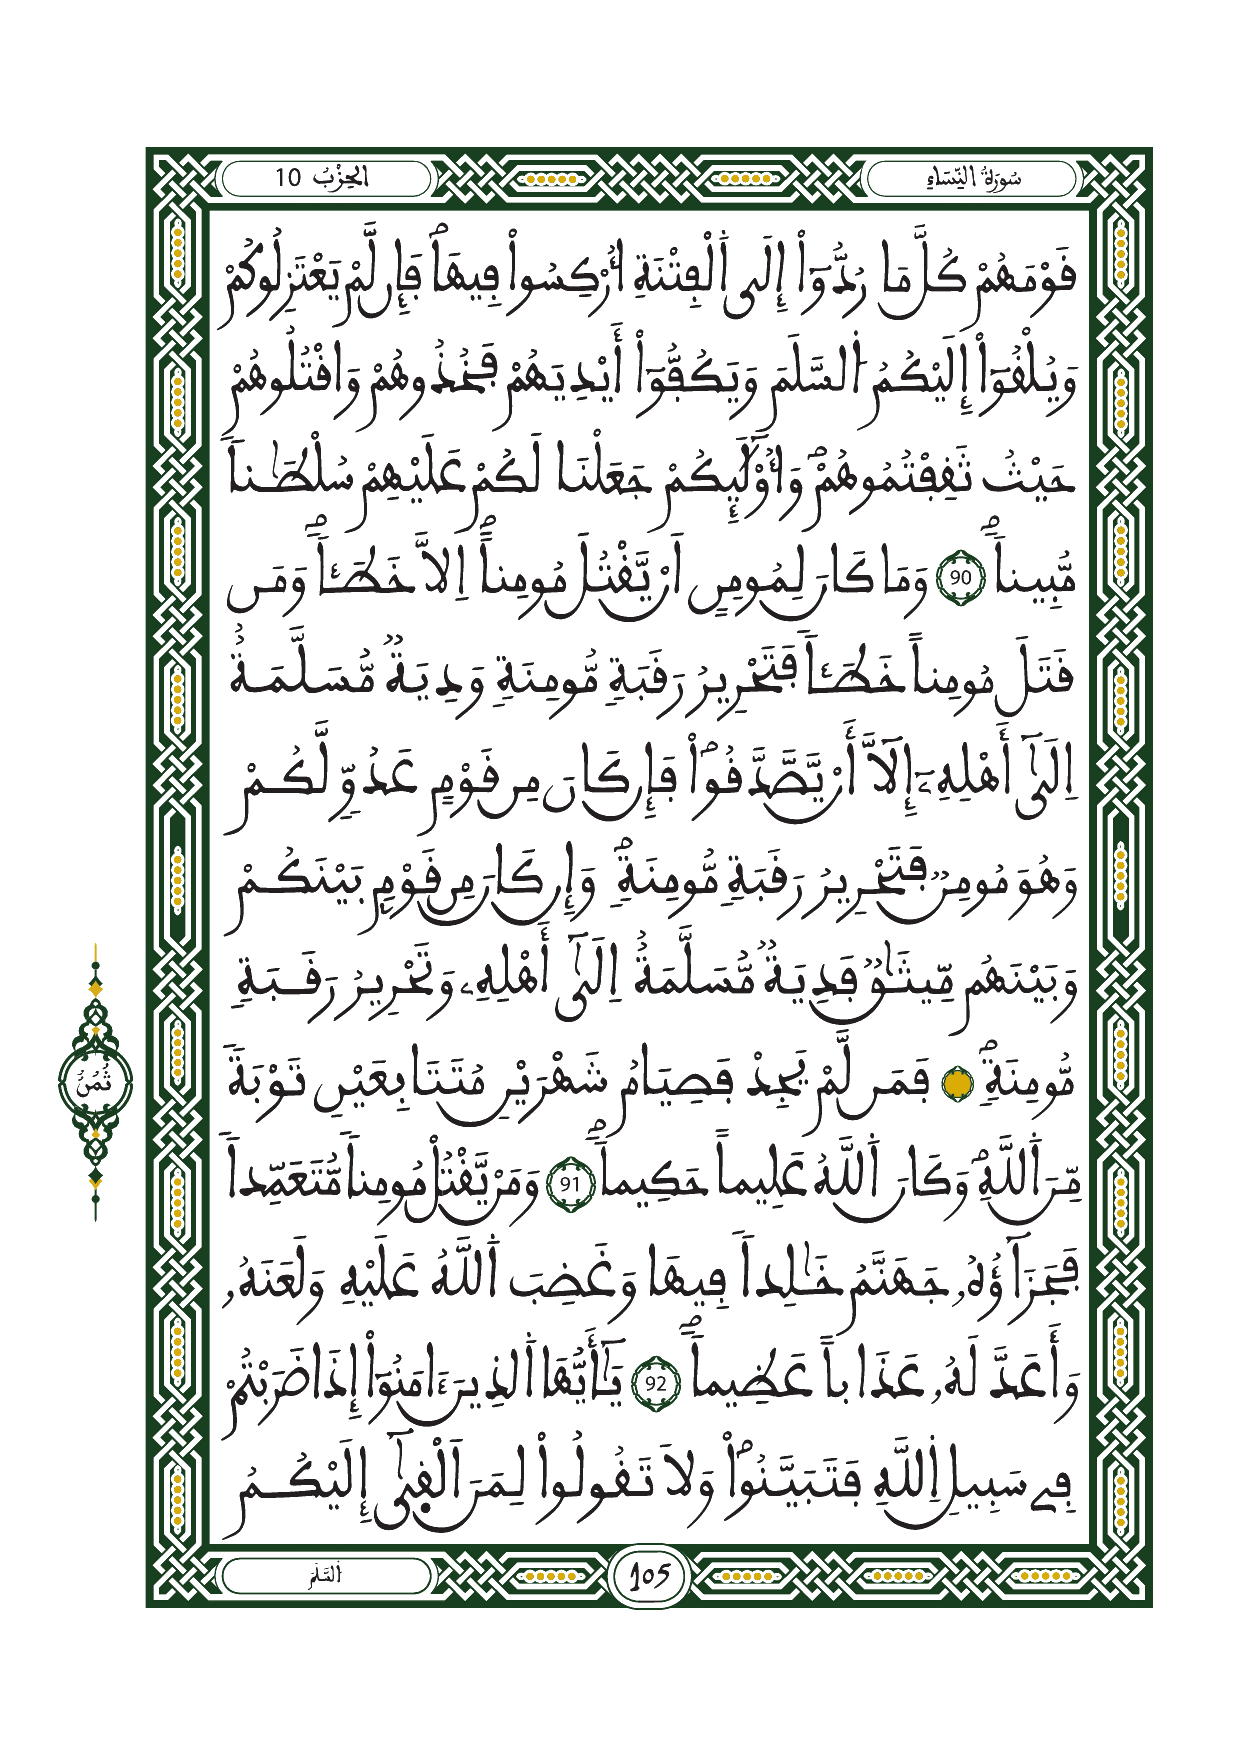 سُورَةُ النِّسَاءِ
الحِزْبُ 10
قَوْمَهُمْ كُلَّ مَا رُدُّوٓاْ إِلَى اَ۬لْفِتْنَةِ أُرْكِسُواْ فِيهَاۖ فَإِن لَّمْ يَعْتَزِلُوكُمْ
وَيُلْقُوٓاْ إِلَيْكُمُ اُ۬لسَّلَمَ وَيَكُفُّوٓاْ أَيْدِيَهُمْ فَخُذُوهُمْ وَاقْتُلُوهُمْ
حَيْثُ ثَقِفْتُمُوهُمْۖ وَأُوْلَٰٓئِكُمْ جَعَلْنَا لَكُمْ عَلَيْهِمْ سُلْطَٰناٗ
مُّبِيناٗۖ 90 وَمَا كَانَ لِمُومِنٍ اَنْ يَّقْتُلَ مُومِناً اِلَّا خَطَـٔاٗۖ وَمَن
قَتَلَ مُومِناً خَطَـٔاٗ فَتَحْرِيرُ رَقَبَةٖ مُّومِنَةٖ وَدِيَةٞ مُّسَلَّمَةٌ
اِلَىٰٓ أَهْلِهِۦٓ إِلَّآ أَنْ يَّصَّدَّقُواْۖ فَإِن كَانَ مِن قَوْمٍ عَدُوّٖ لَّكُمْ
وَهُوَ مُومِنٞ فَتَحْرِيرُ رَقَبَةٖ مُّومِنَةٖۖ وَإِن كَانَ مِن قَوْمِۢ بَيْنَكُمْ
وَبَيْنَهُم مِّيثَٰقٞ فَدِيَةٞ مُّسَلَّمَةٌ اِلَىٰٓ أَهْلِهِۦ وَتَحْرِيرُ رَقَبَةٖ
مُّومِنَةٖۖ فَمَن لَّمْ يَجِدْ فَصِيَامُ شَهْرَيْنِ مُتَتَابِعَيْنِ تَوْبَةٗ
ثُمُنُ
مِّنَ اَ۬للَّهِۖ وَكَانَ اَ۬للَّهُ عَلِيماً حَكِيماٗۖ 91 وَمَنْ يَّقْتُلْ مُومِناٗ مُّتَعَمِّداٗ
فَجَزَآؤُهُۥ جَهَنَّمُ خَٰلِداٗ فِيهَا وَغَضِبَ اَ۬للَّهُ عَلَيْهِ وَلَعَنَهُۥ
وَأَعَدَّ لَهُۥ عَذَاباً عَظِيماٗۖ 92 يَٰٓأَيُّهَا اَ۬لذِينَ ءَامَنُوٓاْ إِذَا ضَرَبْتُمْ
فِے سَبِيلِ اِ۬للَّهِ فَتَبَيَّنُواْۖ وَلَا تَقُولُواْ لِمَنَ اَلْقِىٰٓ إِلَيْكُمُ
اُ۬لسَّلَمَ
105